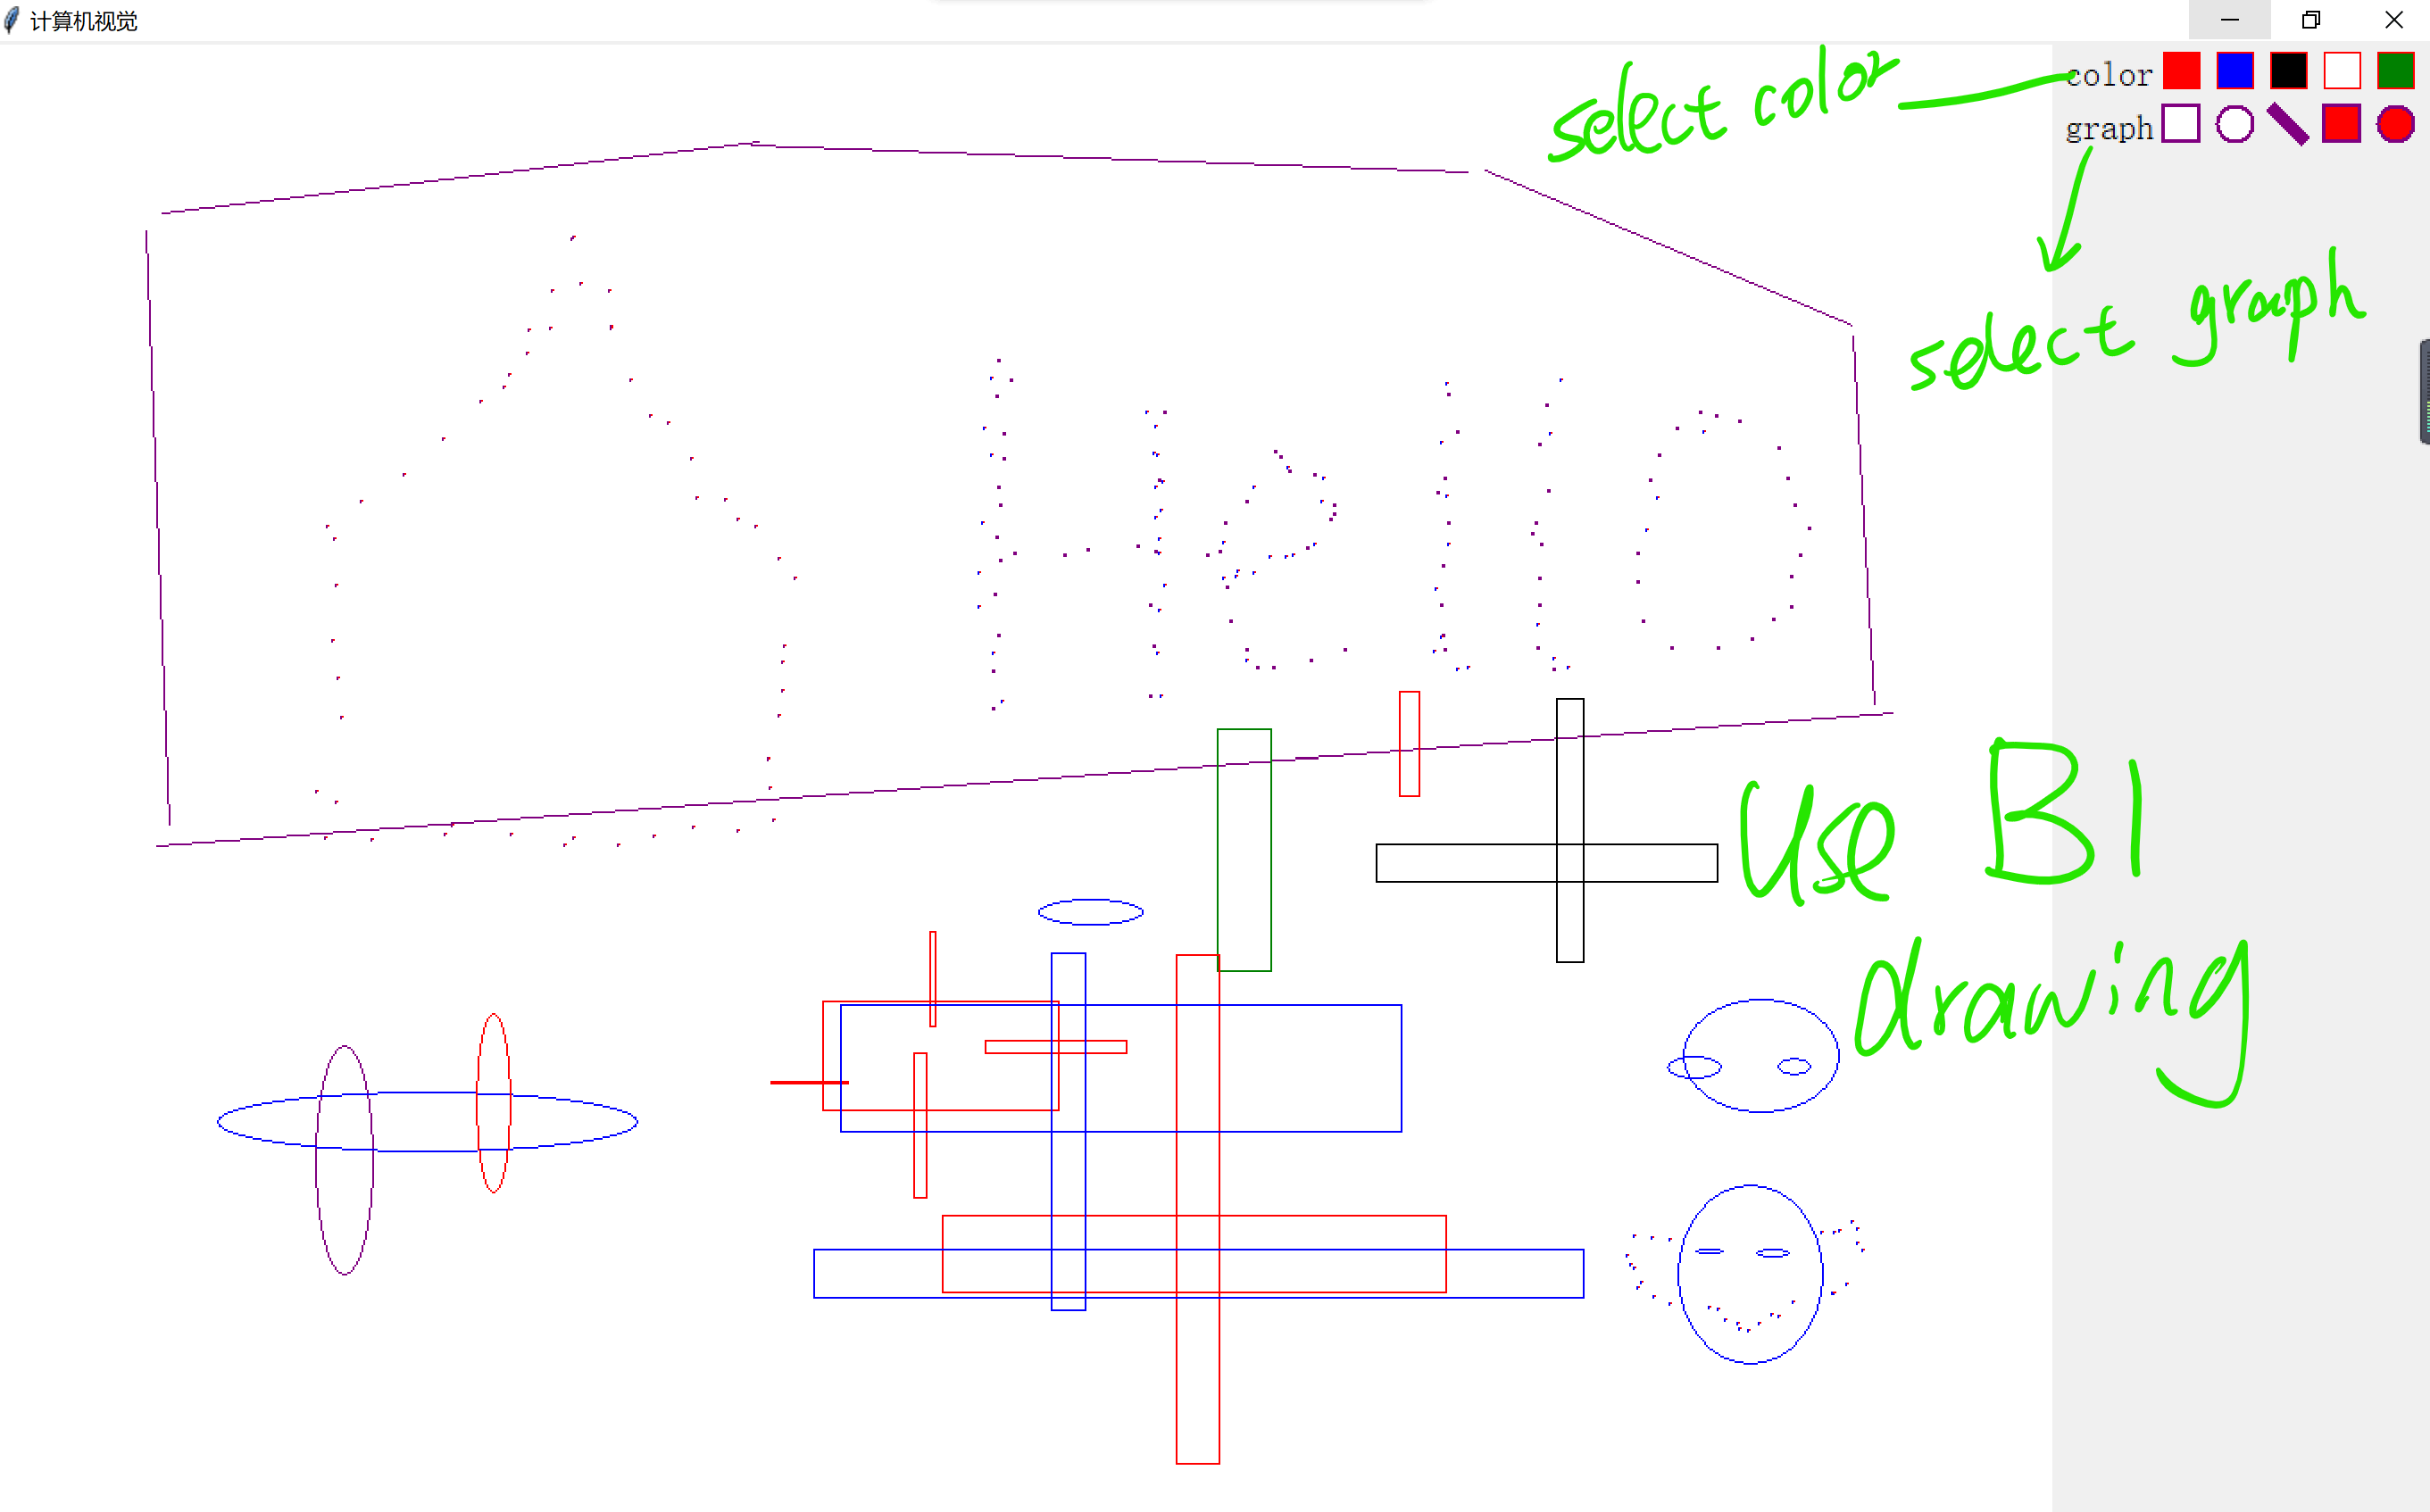 计算机视觉
color
graph
select color
select graph
Hello
Use B1
drawing